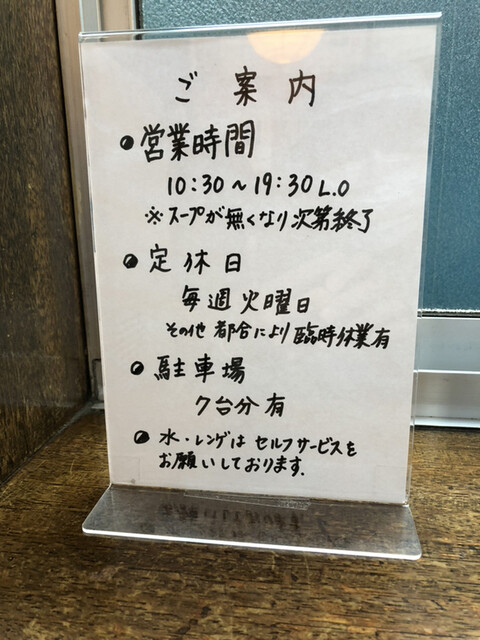 ご案内
●営業時間
10:30～19:30 L.O
※スープが無くなり次第終了
●定休日
毎週火曜日
その他 都合により臨時休業有
●駐車場
7台分有
●水・レンゲは セルフサービスを
お願いしております.